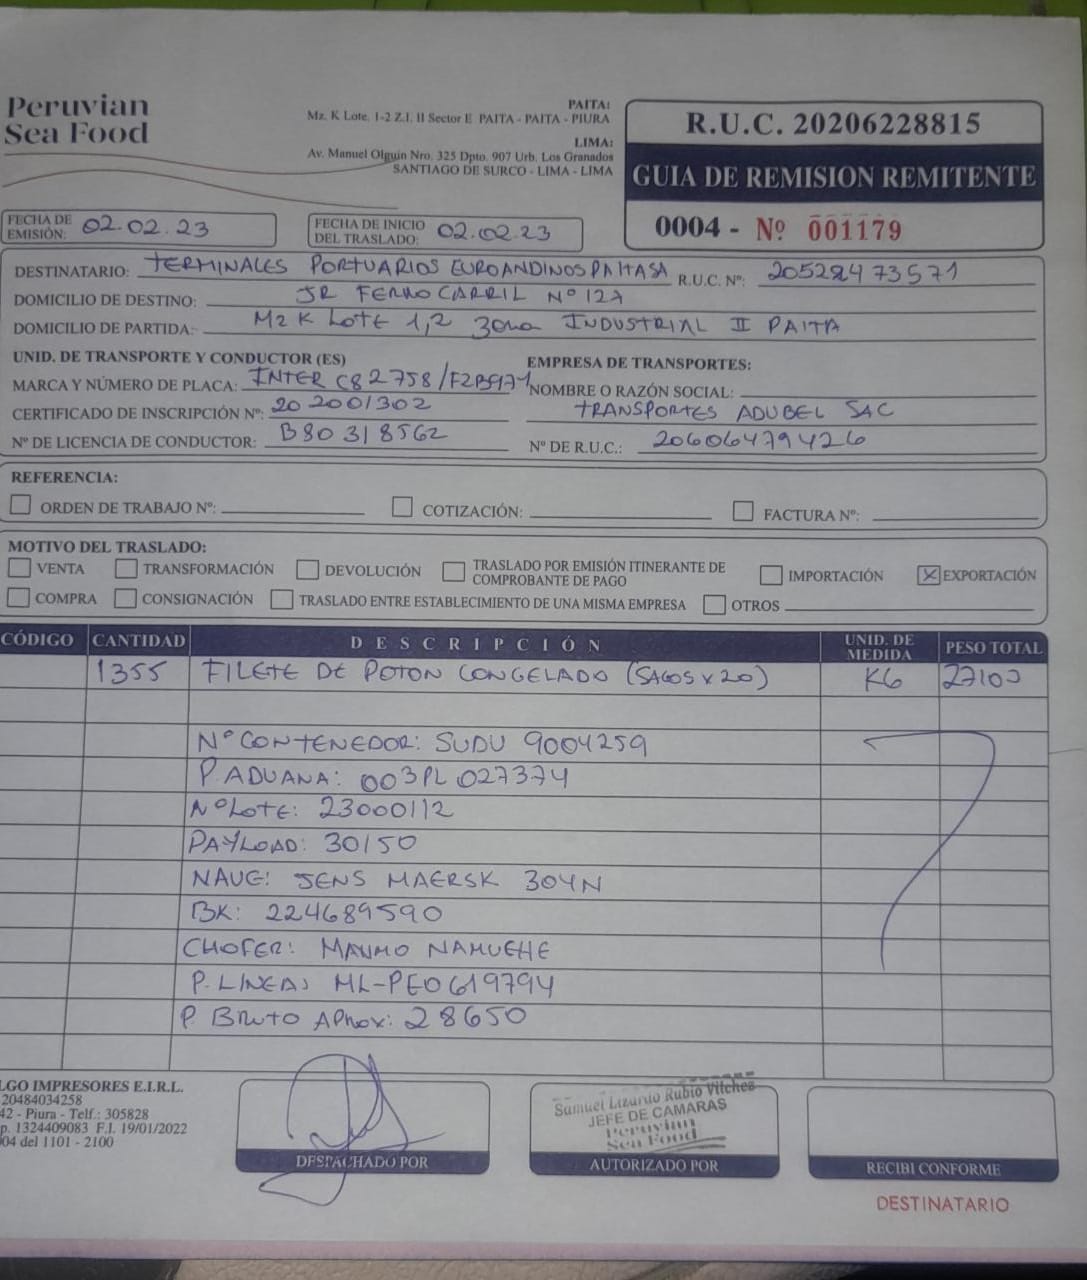 Peruvian
Sea Food
PAITA:
Mz. K Lote. 1-2 Z.I. II Sector E PAITA - PAITA - PIURA
LIMA:
Av. Manuel Olguin Nro. 325 Dpto. 907 Urb. Los Granados
SANTIAGO DE SURCO - LIMA - LIMA
R.U.C. 20206228815
GUIA DE REMISION REMITENTE
0004 - Nº 001179
FECHA DE EMISIÓN: 02.02.23
FECHA DE INICIO DEL TRASLADO: 02.02.23
DESTINATARIO: TERMINALES PORTUARIOS EUROANDINOS PAITA SA R.U.C. Nº: 20528473571
DOMICILIO DE DESTINO: JR FERROCARRIL Nº 127
DOMICILIO DE PARTIDA: Mz K LOTE 1,2 zona INDUSTRIAL II PAITA
UNID. DE TRANSPORTE Y CONDUCTOR (ES)
MARCA Y NÚMERO DE PLACA: INTER C82758/
CERTIFICADO DE INSCRIPCIÓN Nº: 202001302
Nº DE LICENCIA DE CONDUCTOR: B80318562
EMPRESA DE TRANSPORTES:
NOMBRE O RAZÓN SOCIAL:
TRANSPORTES ADUBEL SAC
Nº DE R.U.C.: 20606479426
REFERENCIA:
ORDEN DE TRABAJO Nº: COTIZACIÓN: FACTURA Nº:
MOTIVO DEL TRASLADO:
VENTA TRANSFORMACIÓN DEVOLUCIÓN TRASLADO POR EMISIÓN ITINERANTE DE COMPROBANTE DE PAGO IMPORTACIÓN X EXPORTACIÓN
COMPRA CONSIGNACIÓN TRASLADO ENTRE ESTABLECIMIENTO DE UNA MISMA EMPRESA OTROS
CÓDIGO CANTIDAD DESCRIPCIÓN UNID. DE MEDIDA PESO TOTAL
1355 FILETE DE POTON CONGELADO (SACOS x 20) KG 27100
Nº CONTENEDOR: SUDU 9004259
P. ADUANA: 003PL027374
Nº LOTE: 23000112
PAYLOAD: 30150
NAVE: JENS MAERSK 304N
BK: 224689590
CHOFER: MAURO NAMUCHE
P. LINEA: ML-PE0619794
P. Bruto Aprox: 28650
LGO IMPRESORES E.I.R.L.
20484034258
42 - Piura - Telf.: 305828
p. 1324409083 F.I. 19/01/2022
04 del 1101 - 2100
DESPACHADO POR
Samuel Lizardo Rubio Vilchez
JEFE DE CAMARAS
Peruvian
Sea Food
AUTORIZADO POR
RECIBI CONFORME
DESTINATARIO